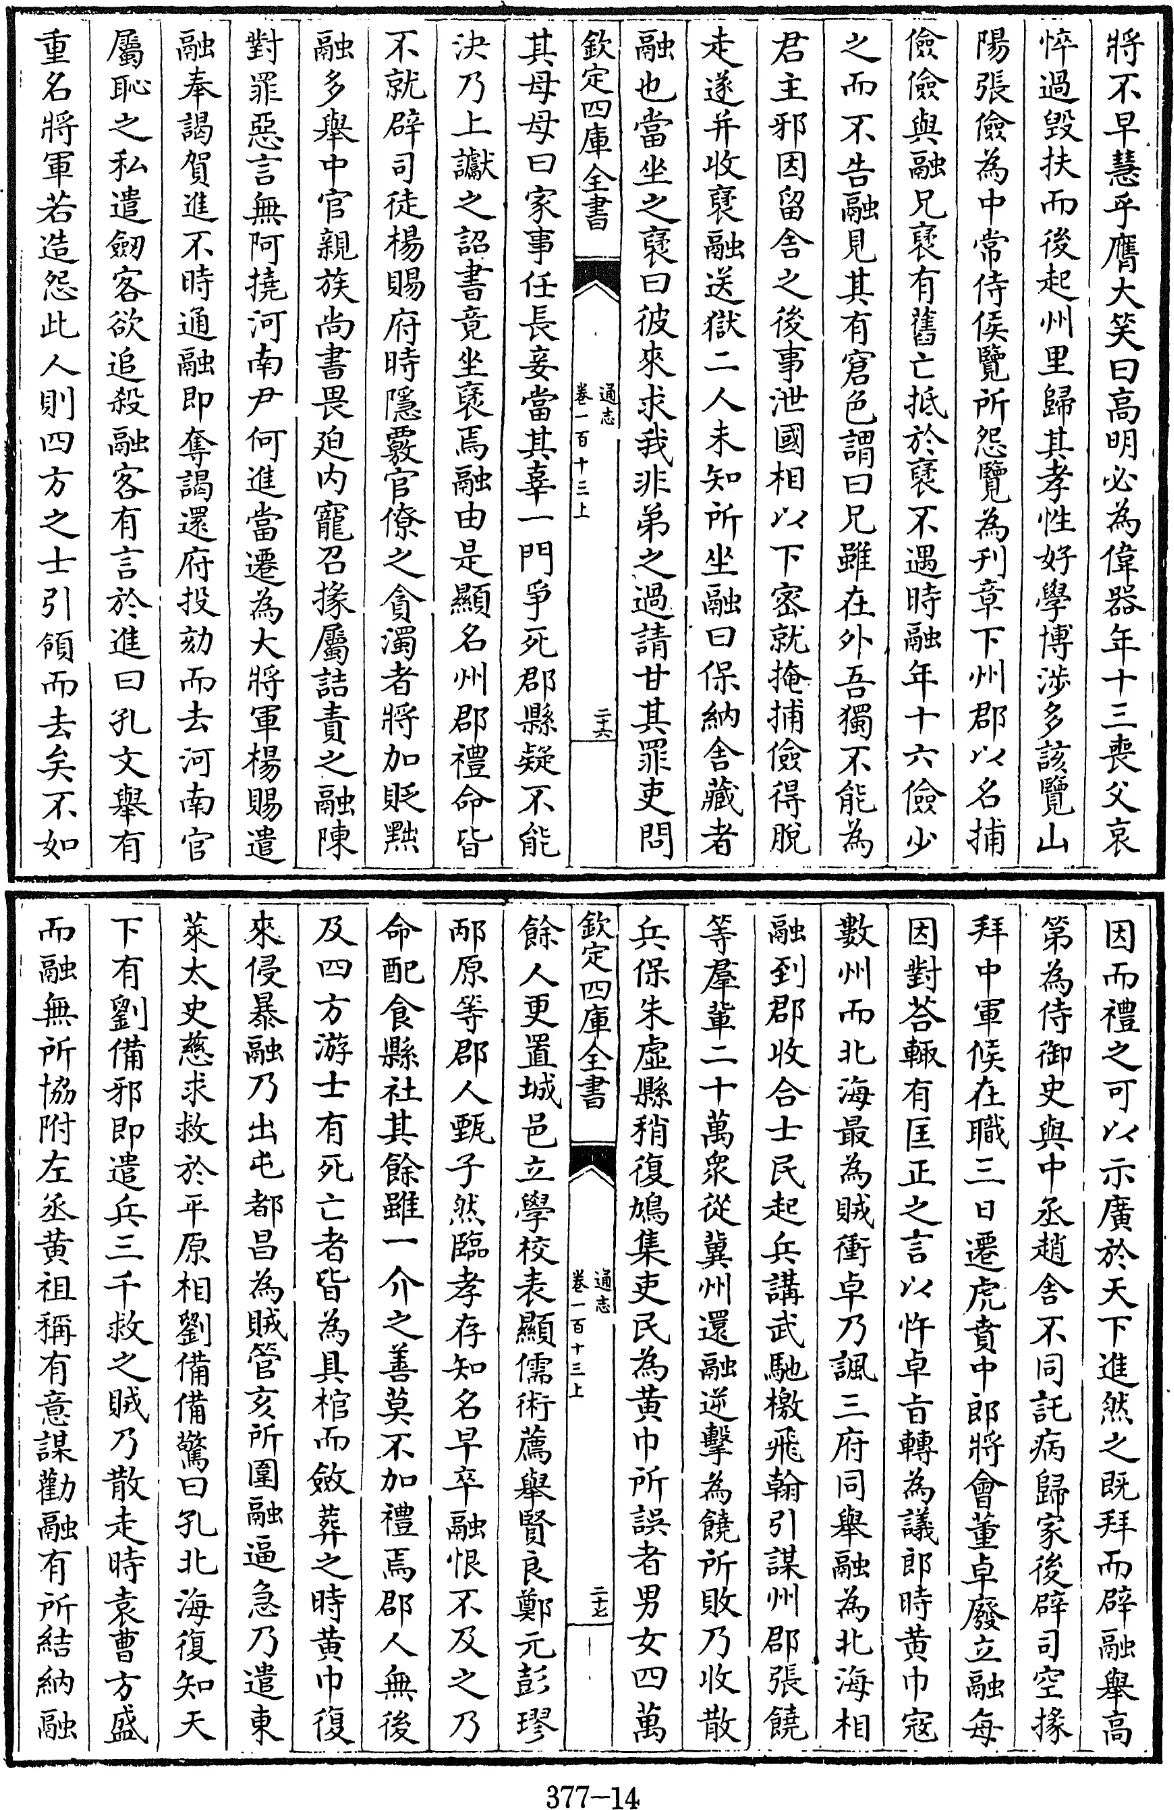 將不早慧乎膺大笑曰高明必為偉器年十三喪父哀
悴過毀扶而後起州里歸其孝性好學博涉多該覽山
陽張儉為中常侍侯覽所怨覽為刋章下州郡以名捕
儉儉與融兄裦有舊亡抵於裦不遇時融年十六儉少
之而不告融見其有窘色謂曰兄雖在外吾獨不能為
君主邪因留舍之後事泄國相以下宻就掩捕儉得脫
走遂并收裦融送獄二人未知所坐融曰保納舍藏者
融也當坐之裦曰彼來求我非弟之過請甘其罪吏問
欽定四庫全書
通志
卷一百十三上
二十六
其母母曰家事任長妾當其辜一門爭死郡縣疑不能
決乃上讞之詔書竟坐裦焉融由是顯名州郡禮命皆
不就辟司徒楊賜府時隱覈官僚之貪濁者將加貶黜
融多舉中官親族尚書畏廹内寵召掾屬詰責之融陳
對罪惡言無阿撓河南尹何進當遷為大將軍楊賜遣
融奉謁賀進不時通融即奪謁還府投劾而去河南官
屬恥之私遣劒客欲追殺融客有言於進曰孔文舉有
重名將軍若造怨此人則四方之士引領而去矣不如
因而禮之可以示廣於天下進然之既拜而辟融舉高
第為侍御史與中丞趙舍不同託病歸家後辟司空掾
拜中軍候在職三日遷虎賁中郎將會董卓廢立融每
因對荅輒有匡正之言以忤卓旨轉為議郎時黄巾寇
數州而北海最為賊衝卓乃諷三府同舉融為北海相
融到郡收合士民起兵講武馳檄飛翰引謀州郡張饒
等羣輩二十萬衆從冀州還融逆擊為饒所敗乃收散
兵保朱虛縣稍復鳩集吏民為黄巾所誤者男女四萬
欽定四庫全書
通志
卷一百十三上
二十七
餘人更置城邑立學校表顯儒術薦舉賢良鄭元彭璆
邴原等郡人甄子然臨孝存知名早卒融恨不及之乃
命配食縣社其餘雖一介之善莫不加禮焉郡人無後
及四方游士有死亡者皆為具棺而斂葬之時黄巾復
來侵暴融乃出屯都昌為賊管亥所圍融逼急乃遣東
萊太史慈求救於平原相劉備備驚曰孔北海復知天
下有劉備邪即遣兵三千救之賊乃散走時袁曹方盛
而融無所協附左丞黄祖稱有意謀勸融有所結納融
377-14